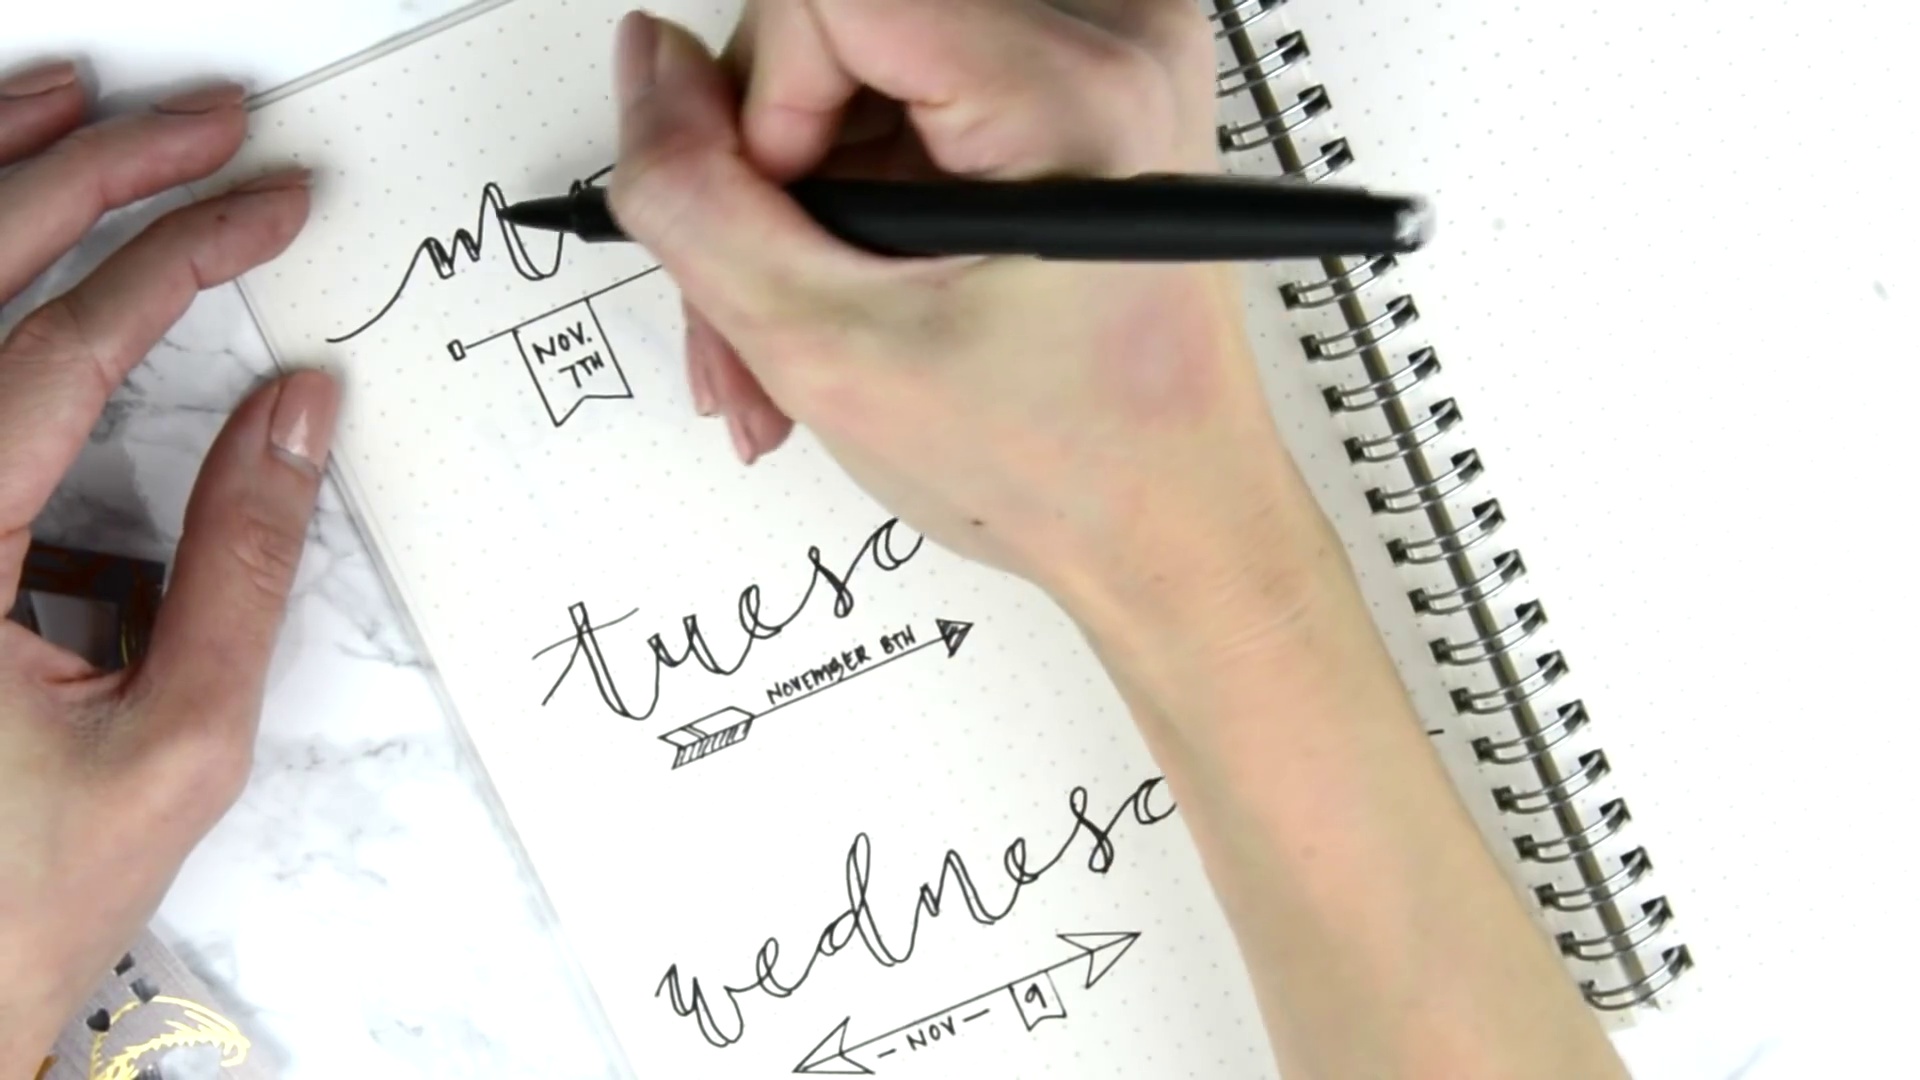 m
NOV.
7TH
tuesd
NOVEMBER 8TH
wednesd
- NOV - 9